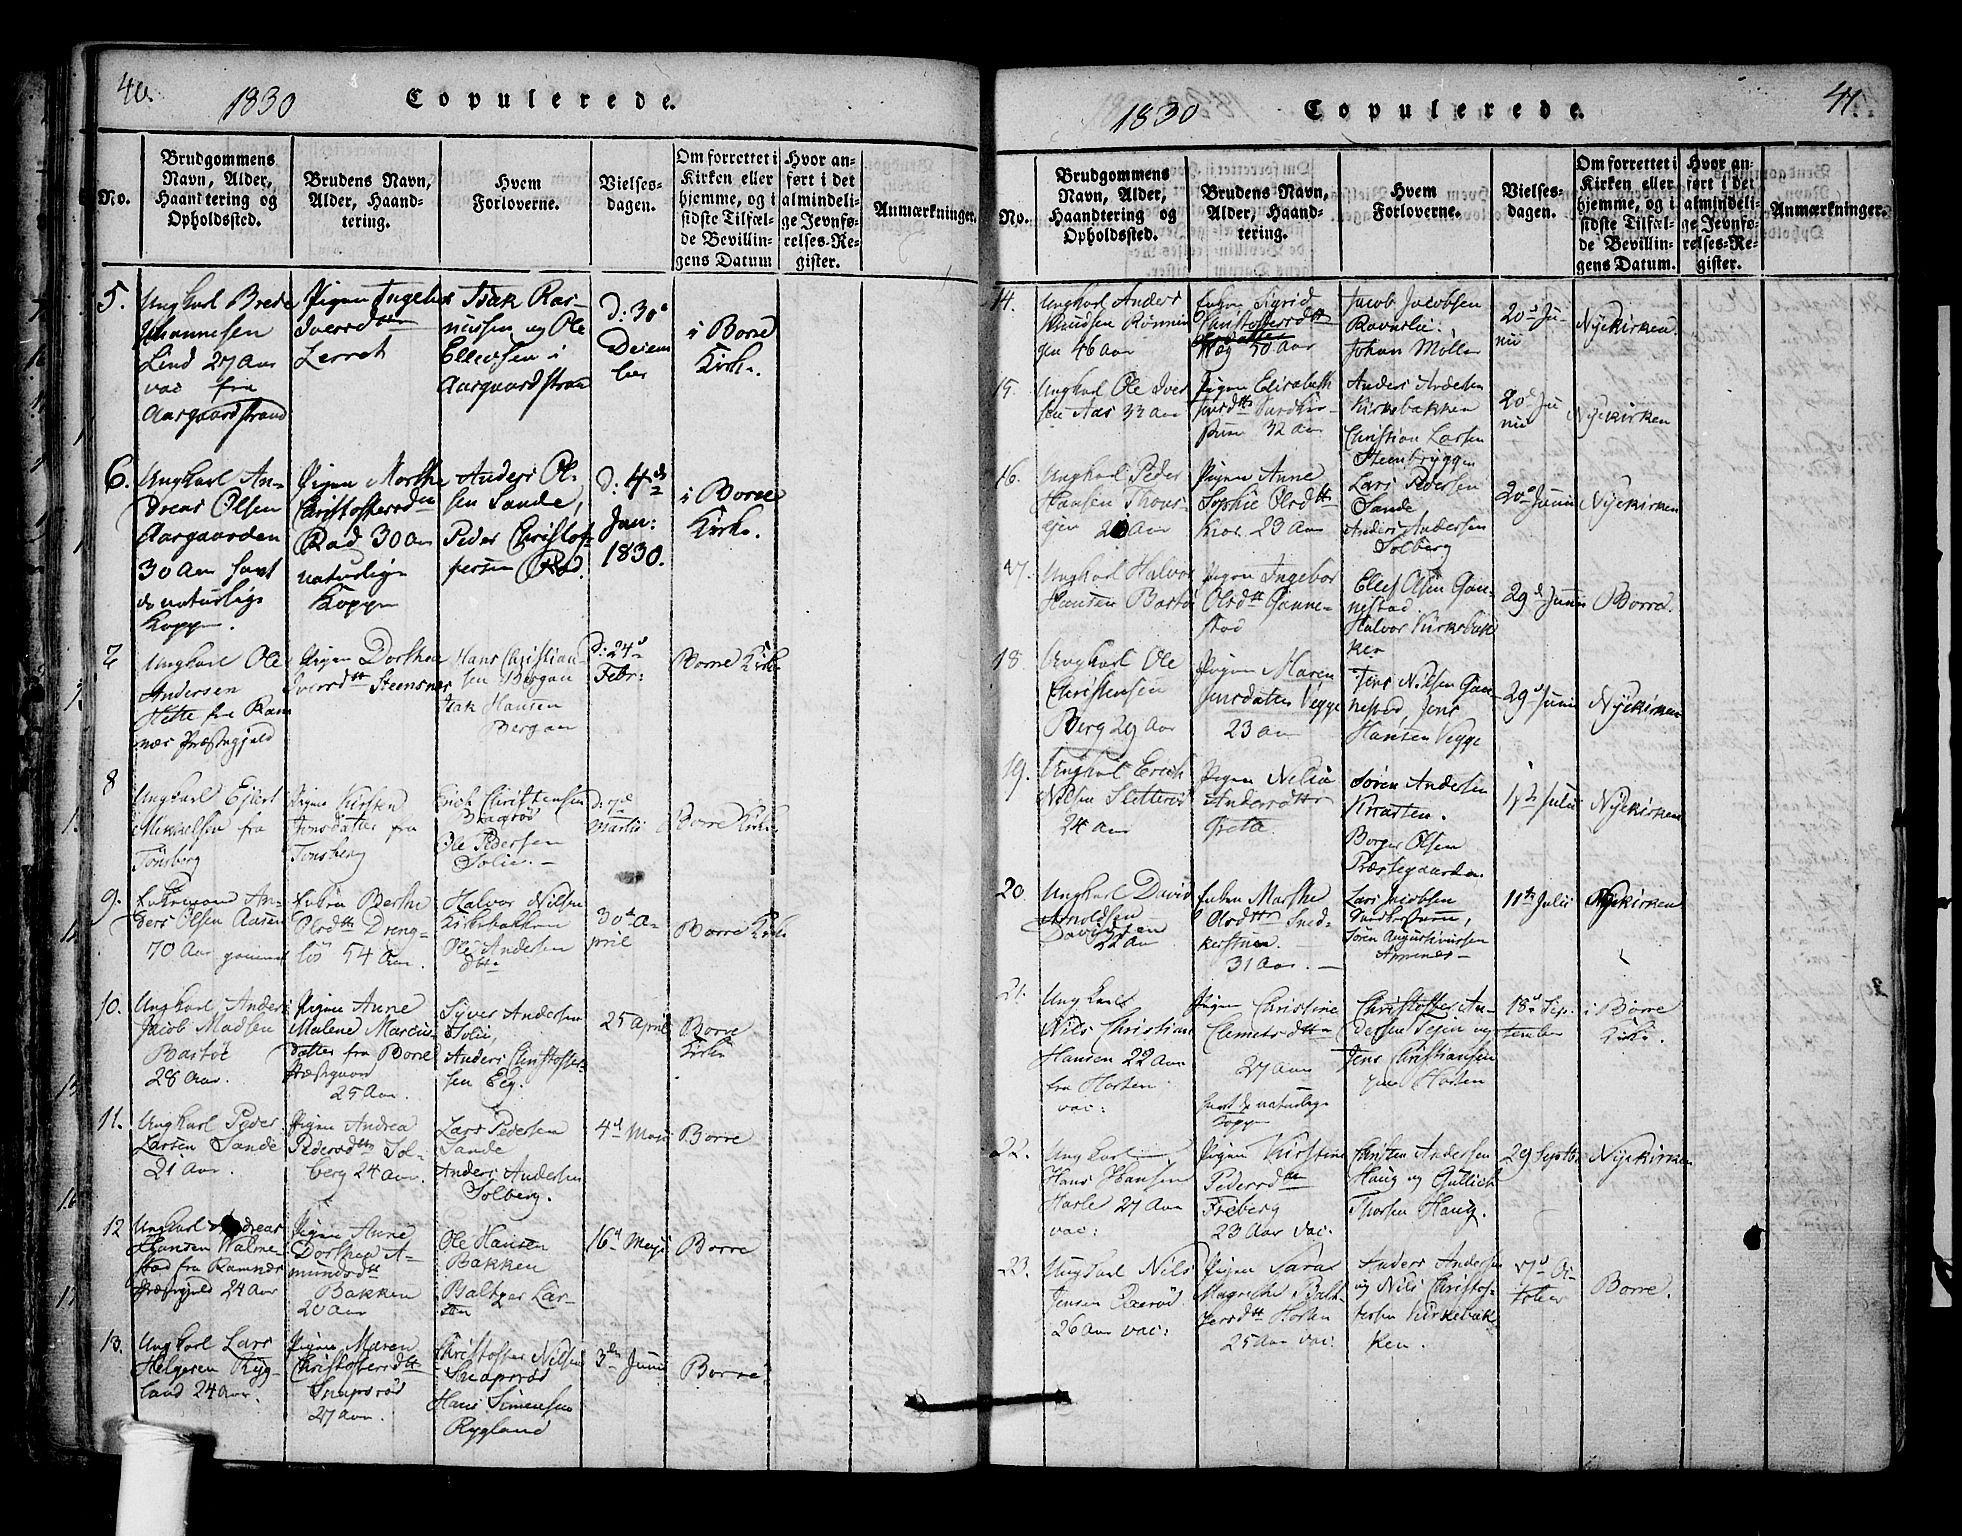 40.
1830
Copulerede.
No.
Brudgommens
Navn, Alder,
Haandtering og
Opholdssted.
Brudens Navn,
Alder, Haand-
tering.
Hvem
Forloverne.
Vielses-
dagen.
Om forrettet i
Kirken eller
hjemme, og i
sidste Tilfæl-
de Bevillin-
gens Datum
Hvor an-
ført i det
almindeli-
ge Jevnfø-
relses-Re-
gister.
Anmærkninger.
5.
Ungkarl Brede
Johannesen
Lind 27 Aar
vac fra
Aargaardstrand
Pigen Ingebor
Iversdtt
Lerret
Isak Ras-
mussen og Ole
Ellevsen i
Aargaardstran
D: 30
Decem
ber
i Borre
Kirke.
6.
Ungkarl An-
dreas Olsen
Aargaarden
30 Aar havt
de naturlige
Kopper.
Pigen Marthe
Christoffersdtt
Rød 30 Aar
naturlige
Kopper
Anders Ol-
sen Sande,
Peder Christof-
fersen Rød.
D: 4de
Jan:
1830.
i Borre
Kirke.
7
Ungkarl Ole
Andersen
Hette fra Ram
næs Præstegjeld
Pigen Dorthea
Iversdtt Steensnes
Hans Christian-
sen Bergan
Isak Hansen
Bergan
D: 24
Febr:
Borre Kirke
8
Ungkarl Ejlert
Mikkelsen fra
Tønsberg
Pigen Kirsten
Jensdatter fra
Tønsberg
Erich Christensen
Ole Pedersen
Solie.
D: 7de
Martii
Borre Kirke
9.
Enkemand An-
ders Olsen Aasen
70 Aar gammel
Enken Berthe
Olsdtt Dreng-
54 Aar.
Halvor Nilsen
Kirkebakken
Ole Andersen
Dtto
30te A-
pril
Borre Kirke
10.
Ungkarl Anders
Jacob Madsen
Bastøe
28 Aar.
Pigen Anne
Malene Marcus-
datter fra Borre
Præstegaard
25 Aar.
Syver Andersen
Solie,
Anders Christoffer-
sen Eeg.
25 April
Borre
Kirke
11.
Ungkarl Peder
Larsen Sande
21 Aar.
Pigen Andrea
Pedersdtt Sol-
berg 24 Aar.
Lars Pedersen
Sande
Anders Andersen
Solberg.
4de Maji
Borre
12
Ungkarl Andreas
Hansen Valme-
stad fra Ramnæs
Præstegjeld 24 Aar
Pigen Anne
Dorthea A-
mundsdtt
Bakken
20 Aar
Ole Hansen
Bakken
Baltzer Lar-
sen
16de Maji
Borre
13.
Ungkarl Lars
Helgesen Ryg-
land 24 Aar.
Pigen Maren
Christoffersdtt
Snapsrød
27 Aar.
Christoffer Nilsen
Snapsrød
Hans Simensen
Rygland
3die Junii
Borre
41.
1830
Copulerede.
No.
Brudgommens
Navn, Alder,
Haandtering og
Opholdssted.
Brudens Navn,
Alder, Haand-
tering.
Hvem
Forloverne.
Vielses-
dagen.
Om forrettet i
Kirken eller
hjemme, og i
sidste Tilfæl-
de Bevillin-
gens Datum.
Hvor an-
ført i det
almindeli-
ge Jevnfø-
relses-Re-
gister.
Anmærkninger.
14.
Ungkarl Anders
Knudsen Rønnin
gen 46 Aar
Enken Sigrid
Christoffersdtt
50 Aar
Jacob Jacobsen
Ravnlie.
Johan Møller
20de Ju-
nii
Nyekirken.
15.
Ungkarl Ole Iver
sen Aas 33 Aar
Pigen Elisabeth
32 Aar
Anders Andersen
Kirkebakken
Christian Larsen
Steenbryggen
20de Ju
nii
Nyekirken
16.
Ungkarl Peder
Hansen
Aar
Pigen Anne
Sophie Olsdtt
23 Aar
Lars Pedersen
Sande
Anders Andersen
Solberg
20de Junii
Nyekirken
17.
Ungkarl Halvor
Hansen Bastøe
Pigen Ingebor
Olsdtt Ganne-
stad
Ellef Olsen Gan-
nestad.
Halvor Kirkebak
ken
29de Junii
Borre.
18.
Ungkarl Ole
Christensen
Berg 29 Aar
Pigen Maren
Jensdatter Vegge
23 Aar
Jens Nilsen Gan-
nestad Jens
Hansen Vegge
29de Junii
Nyekirken
19.
Ungkarl Erich
Nilsen Sletterød
24 Aar
Pigen Nilia
Andersdtt
Søren Andersen
Borger Olsen
Præstegaarden
1ste Julii
Nyekirken
20.
Ungkarl David
Arnoldsen
Davidsen
22 Aar
Enken Marthe
Olsdtt Sned-
kerstuen.
31 Aar.
Lars Jacobsen
Søren Augustinussen
11te Julii
Nyekirken
21.
Ungkarl
Nils Christian
Hansen 22 Aar
fra Horten.
vac:
Pigen Christine
Clemetsdtt
27 Aar
havt de naturlige
Kopper
Christoffer An-
dersen Teien og
Jens Christiansen
Horten
18de Sep-
tember
i Borre
Kirke.
22.
Ungkarl
Hans Hansen
Harle 27 Aar
vac:
Pigen Kirstine
Pedersdtr
Freberg
23 Aar vac:
Christen Andersen
Haug og Gullich
Thorsen Haug.
29 Septbr
Nyekirken
23.
Ungkarl Nils
Jensen
26 Aar vac:
Pigen Sara
Magrethe Balt-
zersdtt Horten
25 Aar vac:
Anders Andersen
og Nils Christof-
fersen Kirkebak-
ken.
Oc-
tober
Borre.